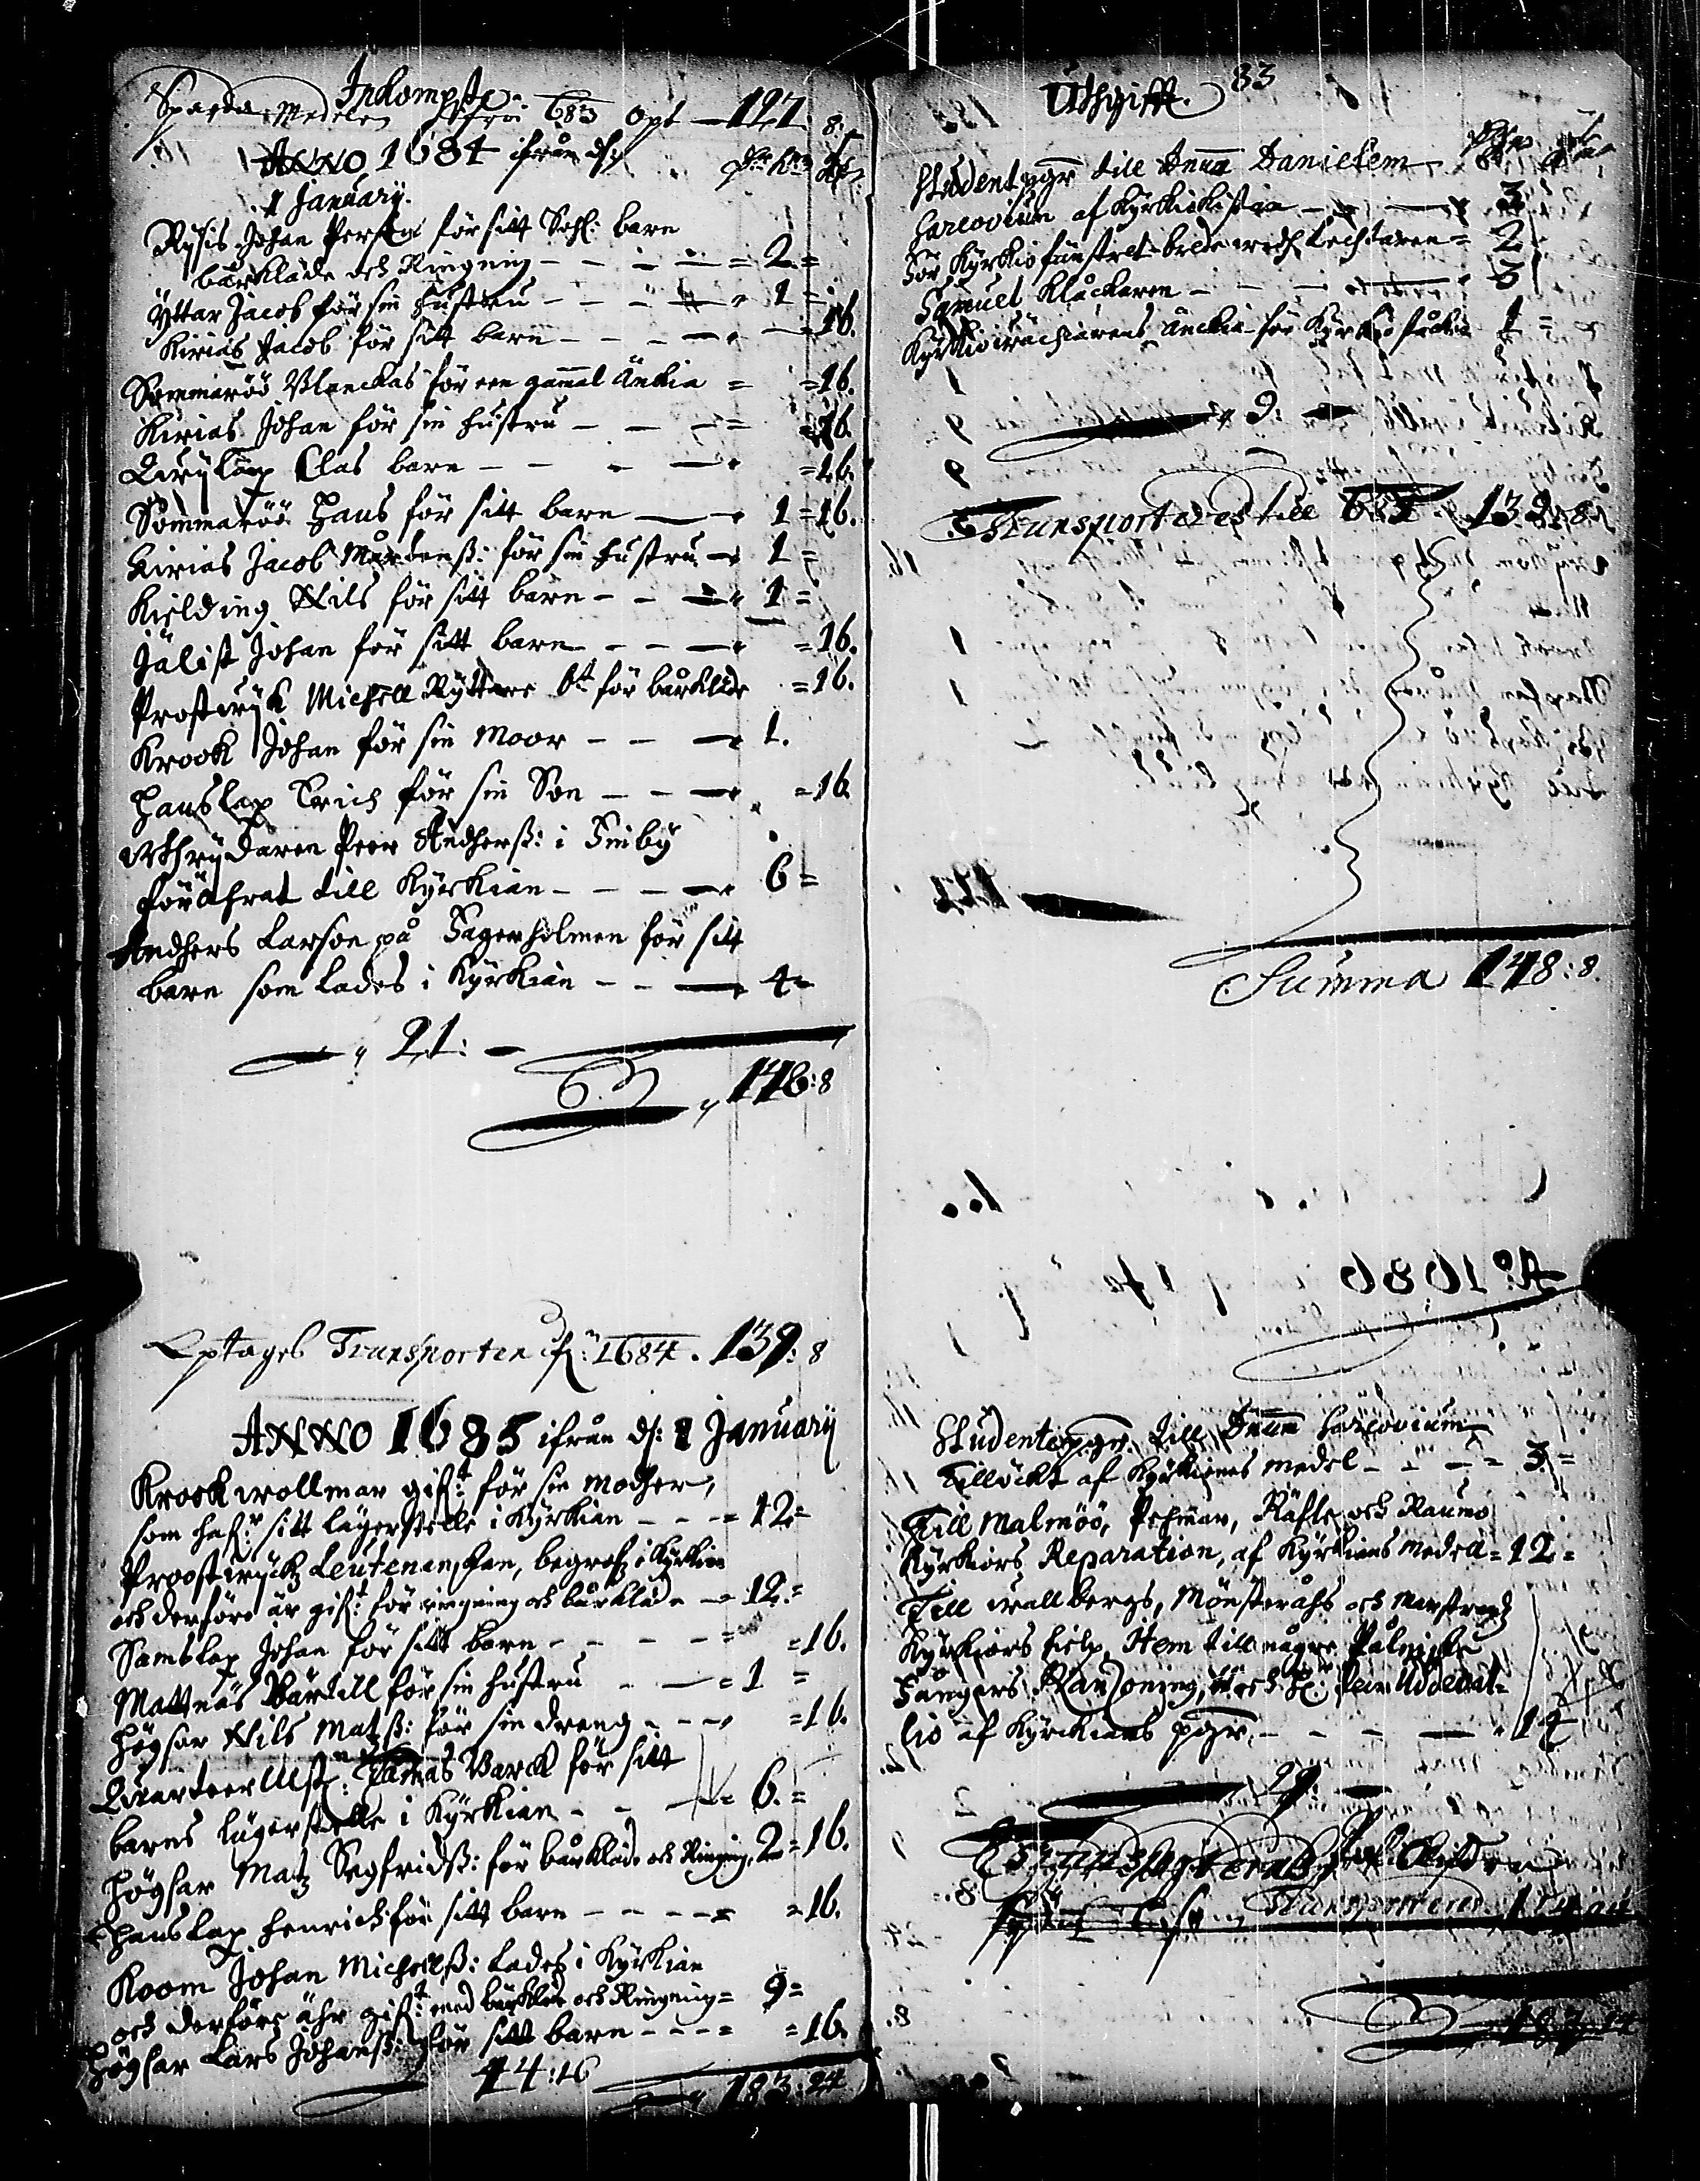 Inkompster
Sparda Medelen ifrån 683 Opt — 127: 8.
ANNO 1684 ifrån ds:
1 January.
Rysis Johan Perss för sitt Sahl: barn
bårkläde och Ringning - - - = 2 =
Yttar Jacob för sin hustru - - - 1 =
Kirias Jacob för sitt barn - - - = 16.
Sommaröö Blanckas för een gammal Änkia = = 16.
Kirias Johan för sin hustru - - - = 16.
Clas barn - - - = 16.
Sommaröö Hans för sitt barn — 1 = 16.
Kirias Jacob Mårtenß: för sin hustru — 1 =
Kielding Nils för sitt barn - - 1 =
Jälist Johan för sitt barn - - - = 16.
Prostwijk Michell Ryttare för bårkläde = 16.
Krook Johan för sin Moor - - — 1.
Hanslax Erich för sin Son - - — = 16.
Peer Andherß: i Finby
förährat till Kyrkian - - - 6 =
Andhers Larson på Sagerholmen för sitt
barn som lades i Kyrkian - - — 4 =
21: —
148: 8
Optages Transporten ifr: 1684. 139: 8
ANNO 1685 ifrån ds: 1 January
Krook wollmar gift: för sin modher,
som haf:r sitt lägerstelle i Kyrkian - - = 12 =
Proostwijckz Leutenan, begrofs i Kyrkian
och derföre är gif:t för ringning och bårkläde = 12. =
Samslax Johan för sitt barn - - - - = 16.
Mattnäs Bärtill för sin hustru - — 1 =
Högsar Nils Matzß: för sin dreng - - - = 16.
Quarteer Mst: Tomas Varck för sitt
barns lägerstelle i Kyrkian - - = 6. =
Högsar Matz Segfridß: för bårkläde och Ringning. 2 = 16.
Hanslax Henrich för sitt barn - - - - = 16.
Koom Johan Michellß: lades i Kyrkian
och derföre ähr gif:t med bårkläde och Ringning = 9 =
Högsar Lars Johanß: för sitt barn - - - = 16.
44: 16
183: 24
Uthgifft. 83
Studentpgr till Dnum Danielem
Carlovium af Kyrkiokistan - — 3.
För Kyrkiofänstret - 2
Samuel Klåckaren - - - 3
Kyrkiowächtarens Änckia för Kyrkio 1 =
9: —
Transporteres till 685. 139: 8.
Summa 148: 8.
Studentepgr. till Dnum Carlovium
Tillöckt af Kyrkiones medel - - - = 3 =
Till Malmöö, Pehmar, Räfle och Raumo
Kyrkiors Reparation, af Kyrkians medel = 12 =
Till wallbergs, Mönsteråhs och Marstrandz
Kyrkiors hielp, Item till några
Fångars Ranzoning, och
af Kyrckians pgr. - - - — 14
29: —
Transporteres